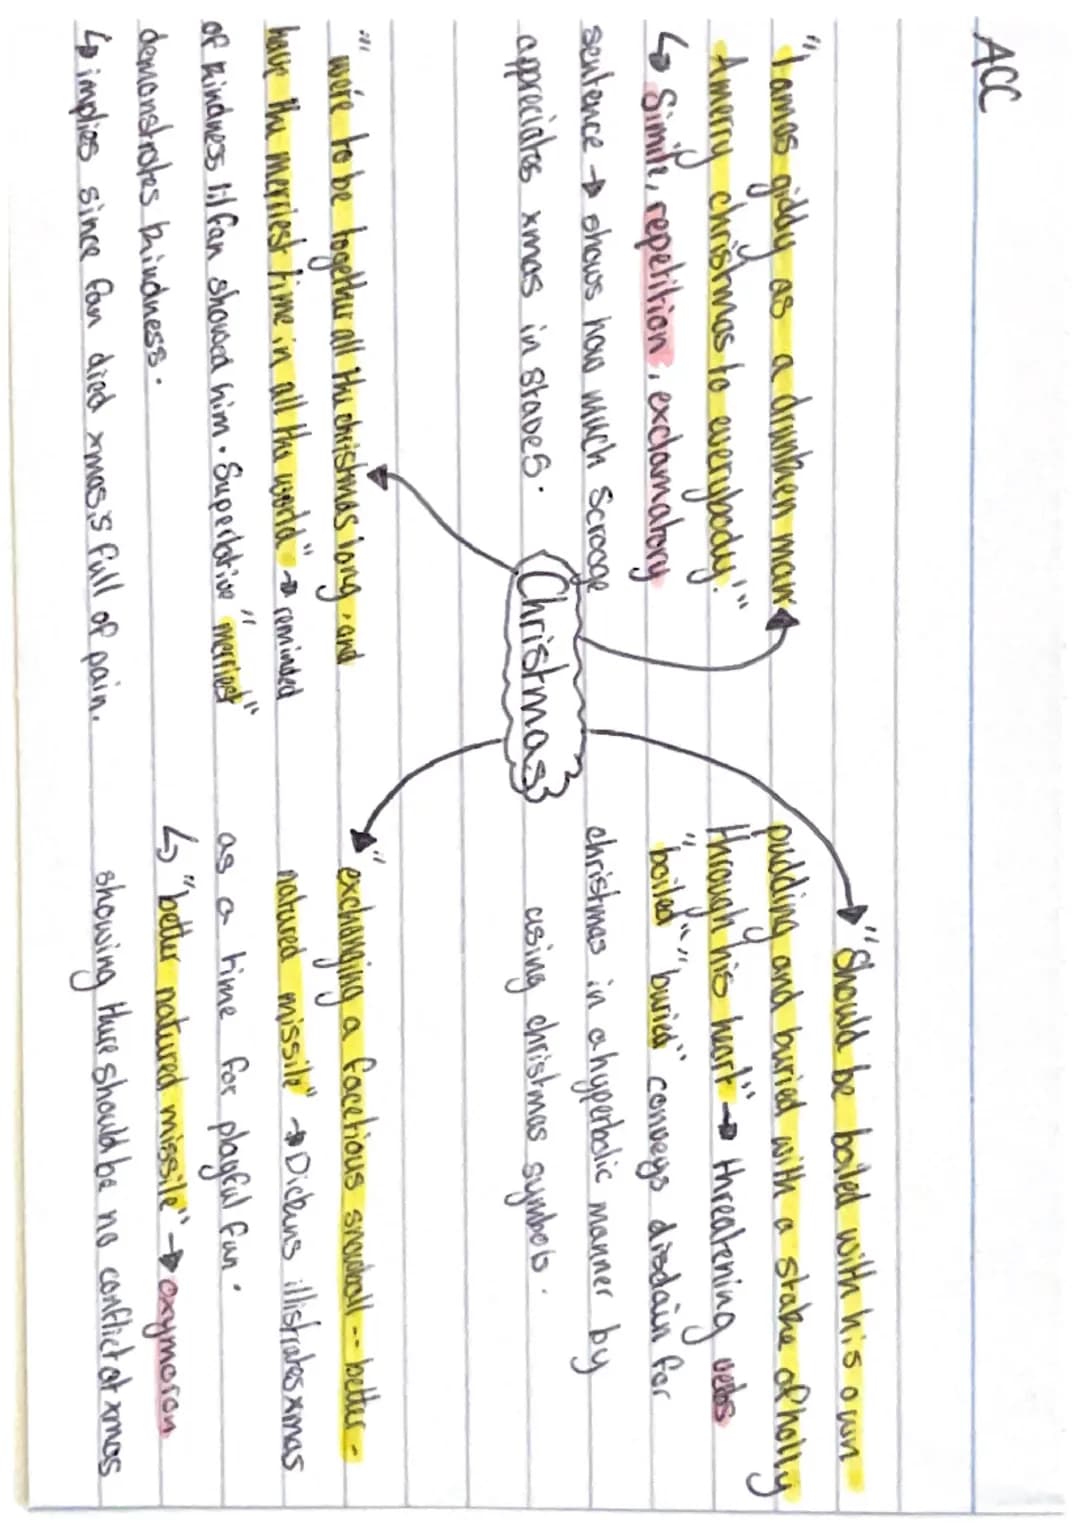 ACC
"I am as giddy as a drunken man
A merry christmas to everybody!"
↳ Simile, repetition, exclamatory
sentence → shows how much Scrooge
appreciates xmas in stave 5.
Christmas
"Should be boiled with his own
pudding and buried with a stake of holly
through his heart" → threatening verbs
"boiled" "buried" conveys disdain for
christmas in a hyperbolic manner by
using christmas symbols.
"were to be together all the christmas long, and
have the merriest time in all the world" → reminded
of kindness lil fan showed him. Superlative "merriest"
demonstrates kindness.
↳ implies since fan died xmas,s full of pain.
"exchanging a facetious snowball -- better -
natured missile" → Dickens illistrates xmas
as a time for playful fun.
↳ "better natured missile" → oxymoron
showing there should be no conflict at xmas